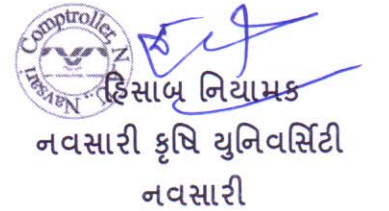 Comptroller, N.
Navsari
હિસાબ નિયામક
નવસારી કૃષિ યુનિવર્સિટી
નવસારી